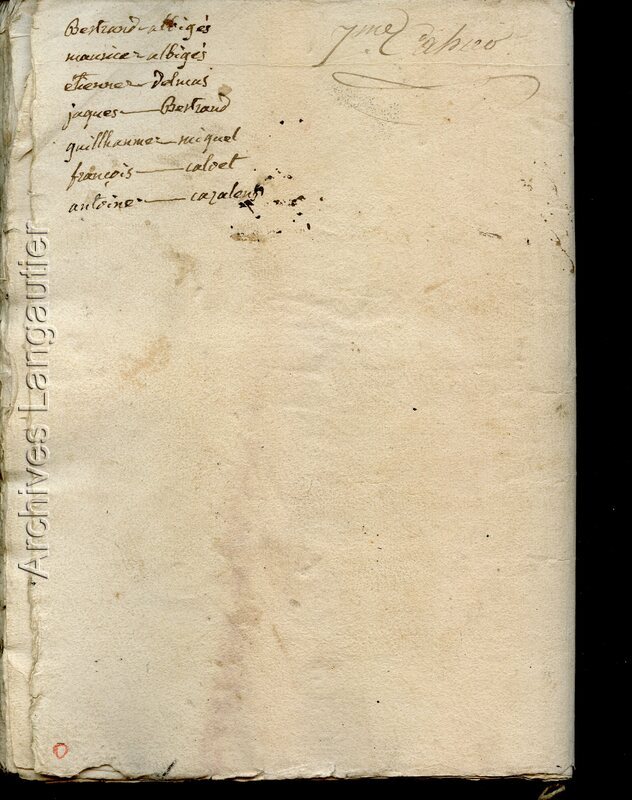 Bertrand albigés
7me Cahier
maurice albigés
étienne delmas
jaques Bertrand
guillhaume miquel
françois calvet
antoine cazalens
Archives Langautier